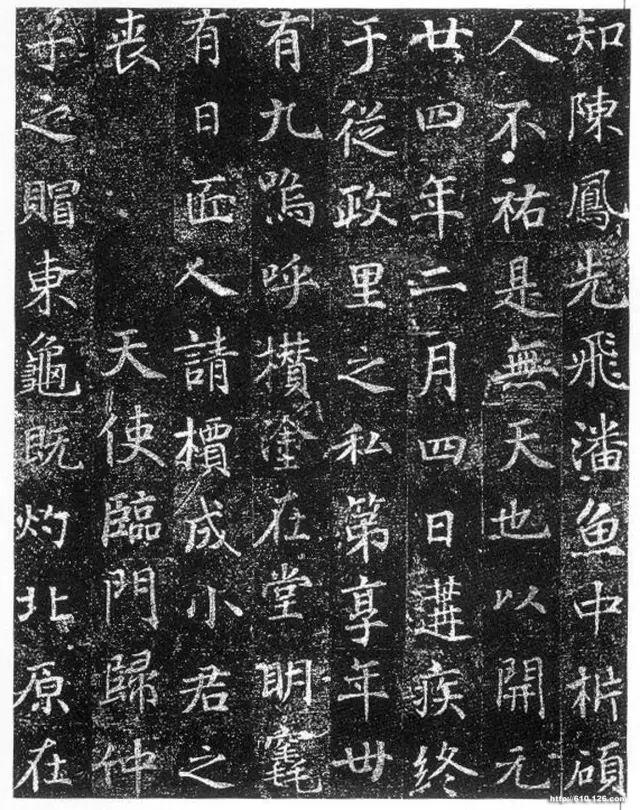 知陳鳳先飛潘魚中析碩
人不祐是無天也以開元
廿四年二月四日遘疾終
于從政里之私第享年卌
有九嗚呼欑塗在堂明竁
有日匠人請檟成小君之
喪 天使臨門歸仲
子之賵東龜既灼北原在
http://610.126.com